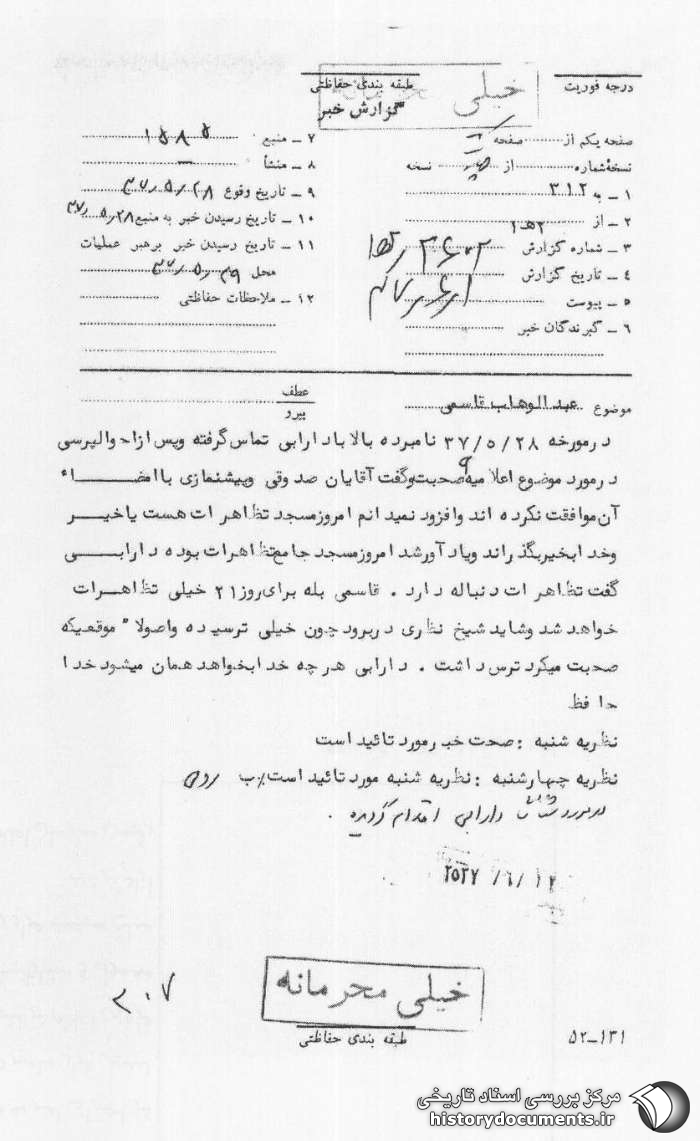 درجه فوریت
طبقه بندی حفاظتی
خیلی
گزارش خبر
صفحه یکم از صفحه
نسخهٔ شماره از نسخه
۱ ــ به ۳۱۲
۲ ــ از ۲ه‍۱
۳ ــ شماره گزارش
۴ ــ تاریخ گزارش ۳۷/۶/۱
۵ ــ پیوست
۶ ــ گیرندگان خبر
۷ ــ منبع
۸ ــ منشأ ــ
۹ ــ تاریخ وقوع ۳۷/۵/۲۸
۱۰ ــ تاریخ رسیدن خبر به منبع ۳۷/۵/۲۸
۱۱ ــ تاریخ رسیدن خبر برهبر عملیات
محل ۳۷/۵/۲۹
۱۲ ــ ملاحظات حفاظتی
موضوع عبدالوهاب قاسمی
عطف
پیرو
درمورخه ۳۷/۵/۲۸ نامبرده بالا بادارابی تماس گرفته وپس ازاحوالپرسی
درمورد موضوع اعلامیه صحبت وگفت آقایان صدوقی وپیشنمازی باامضاء
آن موافقت نکرده اند وافزود نمیدانم امروزمسجد تظاهرات هست یاخیر
وخدابخیربگذراند ویادآورشد امروزمسجد جامع تظاهرات بوده دارابی
گفت تظاهرات دنباله دارد . قاسمی بله برای روز ۲۱ خیلی تظاهرات
خواهدشد وشاید شیخ نظری دربرود چون خیلی ترسیده واصولاً موقعیکه
صحبت میکرد ترس داشت . دارابی هرچه خدابخواهد همان میشود خدا
حافظ
نظریه شنبه : صحت خبرمورد تائید است
نظریه چهارشنبه : نظریه شنبه مورد تائید است٪ب
دارابی اقدام گردیده .
۲۵۳۷/۶/۱۲
خیلی محرمانه
طبقه بندی حفاظتی
۲۰۷
۵۲-۱۳۱
مرکز بررسی اسناد تاریخی
historydocuments.ir